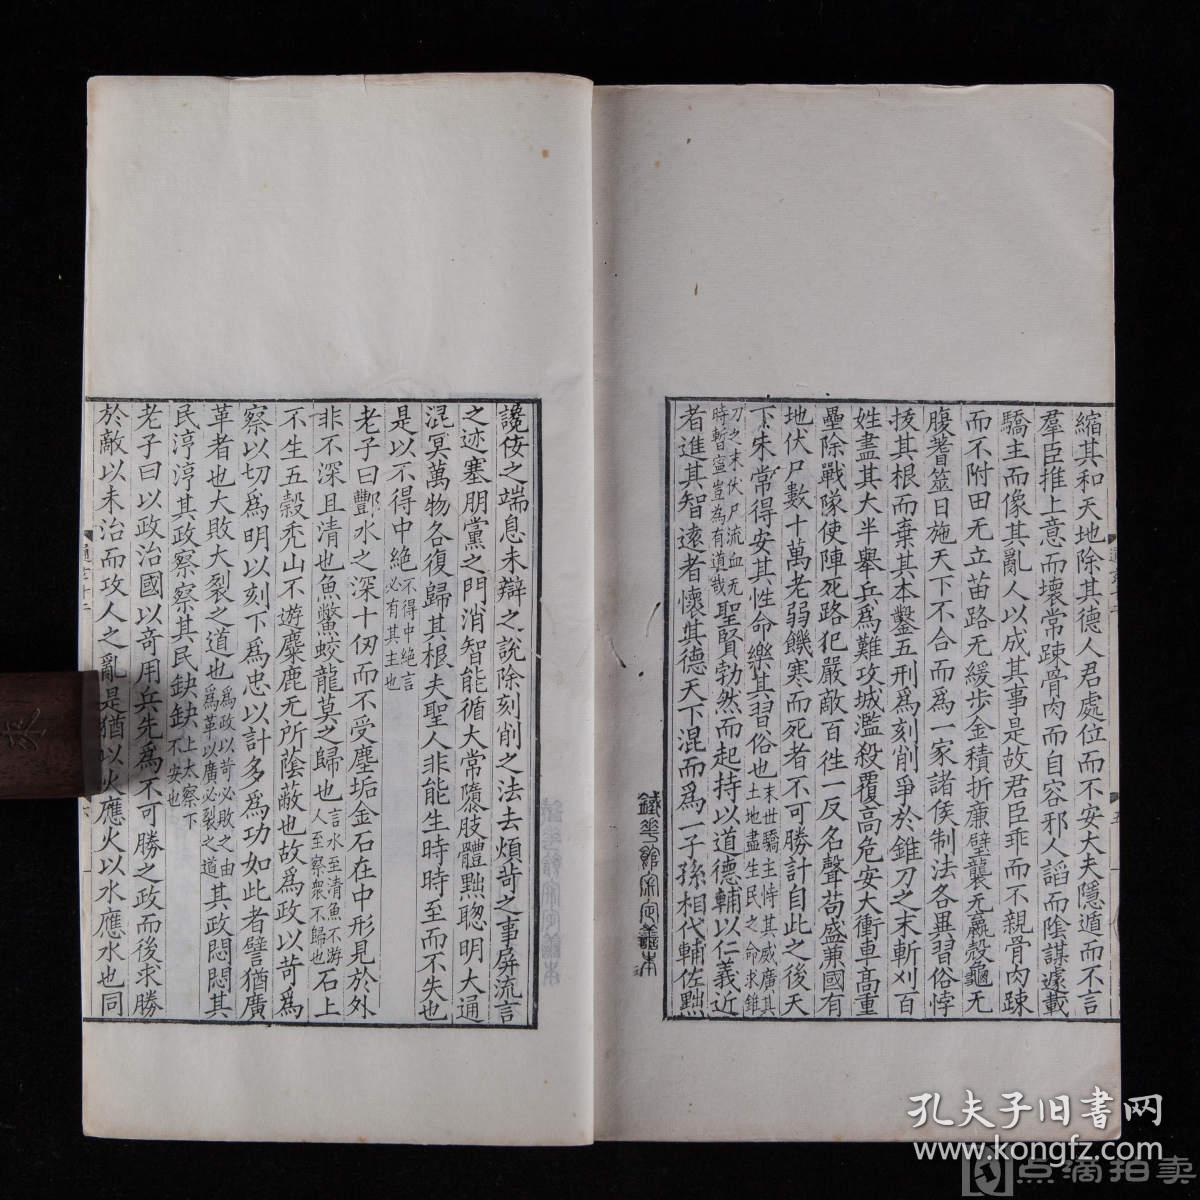 縮其和天地除其德人君處位而不安大夫隱遁而不言
羣臣推上意而壞常踈骨肉而自容邪人謟而陰謀遽載
驕主而像其亂人以成其事是故君臣乖而不親骨肉踈
而不附田无立苗路无緩步金積折廉壁襲无羸殼龜无
腹蓍筮日施天下不合而爲一家諸侯制法各異習俗悖
拔其根而棄其本鑿五刑爲刻削爭於錐刀之末斬刈百
姓盡其大半舉兵爲難攻城濫殺覆高危安大衝車高重
壘除戰隊使陣死路犯嚴敵百徃一反名聲苟盛兼國有
地伏尸數十萬老弱饑寒而死者不可勝計自此之後天
下未常得安其性命樂其習俗也末世驕主恃其威廣其土地盡生民之命求錐
刀之末伏尸流血无時暫寧豈為有道哉聖賢勃然而起持以道德輔以仁義近
者進其智遠者懷其德天下混而爲一子孫相代輔佐黜
鐵華館
讒佞之端息末辯之說除刻削之法去煩苛之事屏流言
之迹塞朋黨之門消智能循大常隳肢體黜聰明大通
混冥萬物各復歸其根夫聖人非能生時時至而不失也
是以不得中絶不得中絶言必有其主也
老子曰酆水之深十仞而不受塵垢金石在中形見於外
非不深且清也魚鱉蛟龍莫之歸也言水至清魚不游人至察衆不歸也石上
不生五穀禿山不遊麋鹿无所蔭蔽也故爲政以苛爲
察以切爲明以刻下爲忠以計多爲功如此者譬猶廣
革者也大敗大裂之道也爲政以苛必敗之由爲革以廣必裂之道其政悶悶其
民淳淳其政察察其民缺缺上太察下不安也
老子曰以政治國以奇用兵先爲不可勝之政而後求勝
於敵以未治而攻人之亂是猶以火應火以水應水也同
孔夫子旧书网
www.kongfz.com
点滴拍卖